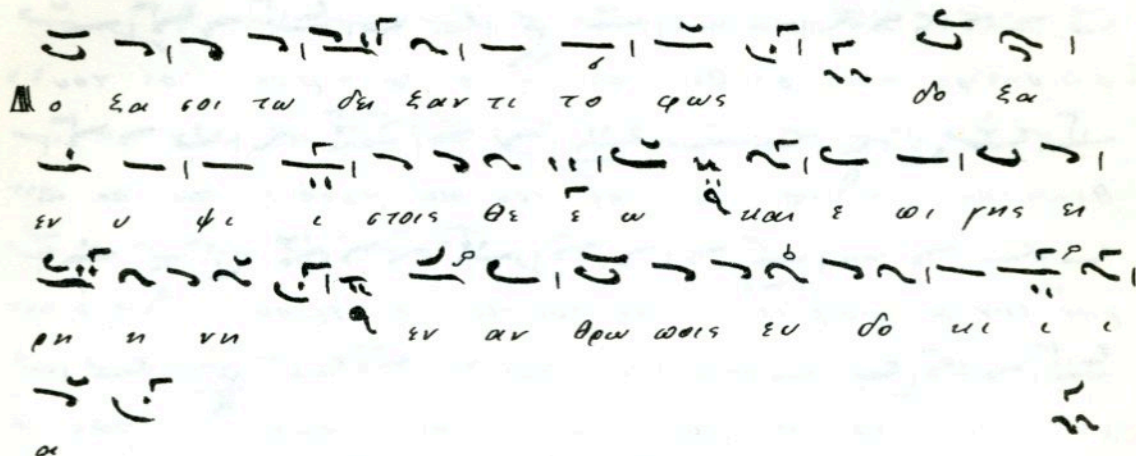 Δο ξα σοι τω δει ξαν τι το φως δο ξα
εν υ ψι ι στοις θε ε ω και ε πι γης ει
ρη η νη εν αν θρω ποις ευ δο κι ι ι
α